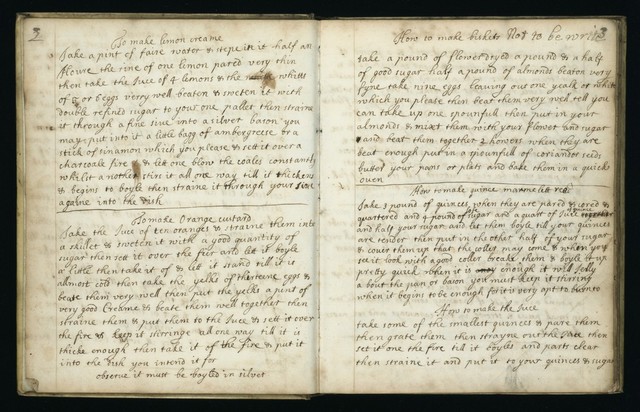 3
To make limon creame
Take a pint of faire water & stepe in it half an
houre the rine of one limon pared very thin
then take the Juce of 4 lemons & the whitts
of 5 or 6 eggs very well beaton & sweten it with
double refined sugar to your one pallet then straine
it through a fine sive into a silver bason you
may put into it a little bagg of ambergreece or a
stick of sinamon which you please & set it over a
charcoale fire & let one blow the coales constantly
whilst another stirs it all one way till it thickens
& begins to boyle then straine it through your sive
againe into the dish
To make Orange custard
Take the Juce of ten oranges & straine them into
a skillet & sweten it with a good quantity of
sugar then set it over the fier and let it boyle
a little then take it of & let it stand till it is
allmost cold then take the yelks of thirteene eggs &
beate them very well then put the yelks a pint of
very good Creame & beate them well together then
straine them & put them to the Juce & sett it over
the fire & keep it stiringe all one way till it is
thicke enough then take it of the fire & put it
into the dish you intend it for
observe it must be boyled in silver
3
How to make biskets Not to be write
take a pound of flower dryed a pound & a half
of good sugar half a pound of almonds beaton very
fyne take nine eggs leaving out one yealk or white
which you please then beat them very well tell you
can take up one spounfull then put in your
almonds & mixt them with your flower and sugar
and beat them together 2 howers when they are
beat enough put in a spounfull of coriander seeds
butter your pans or plats and bake them in a quick
oven
How to make quince marmelet red
Take 3 pound of quinces when they are pared & cored &
quartered and 4 pound of sugar and a quart of Juce
and half your sugar and let them boyle till your quinces
are tender then put in the other half of your sugar
& couer them up that the coller may come & when you
see it look with a good coller breake them & boyle it up
pretty quick when it is enough it will Jelly
about the pan or bason you must keep it stiring
when it begins to be enough for it is very apt to burn to
How to make the Juce
take some of the smallest quinces & pare them
then grate them then strayne out the Juce then
set it one the fire till it boyles and parts clear
then straine it and put it to your quinces & sugar